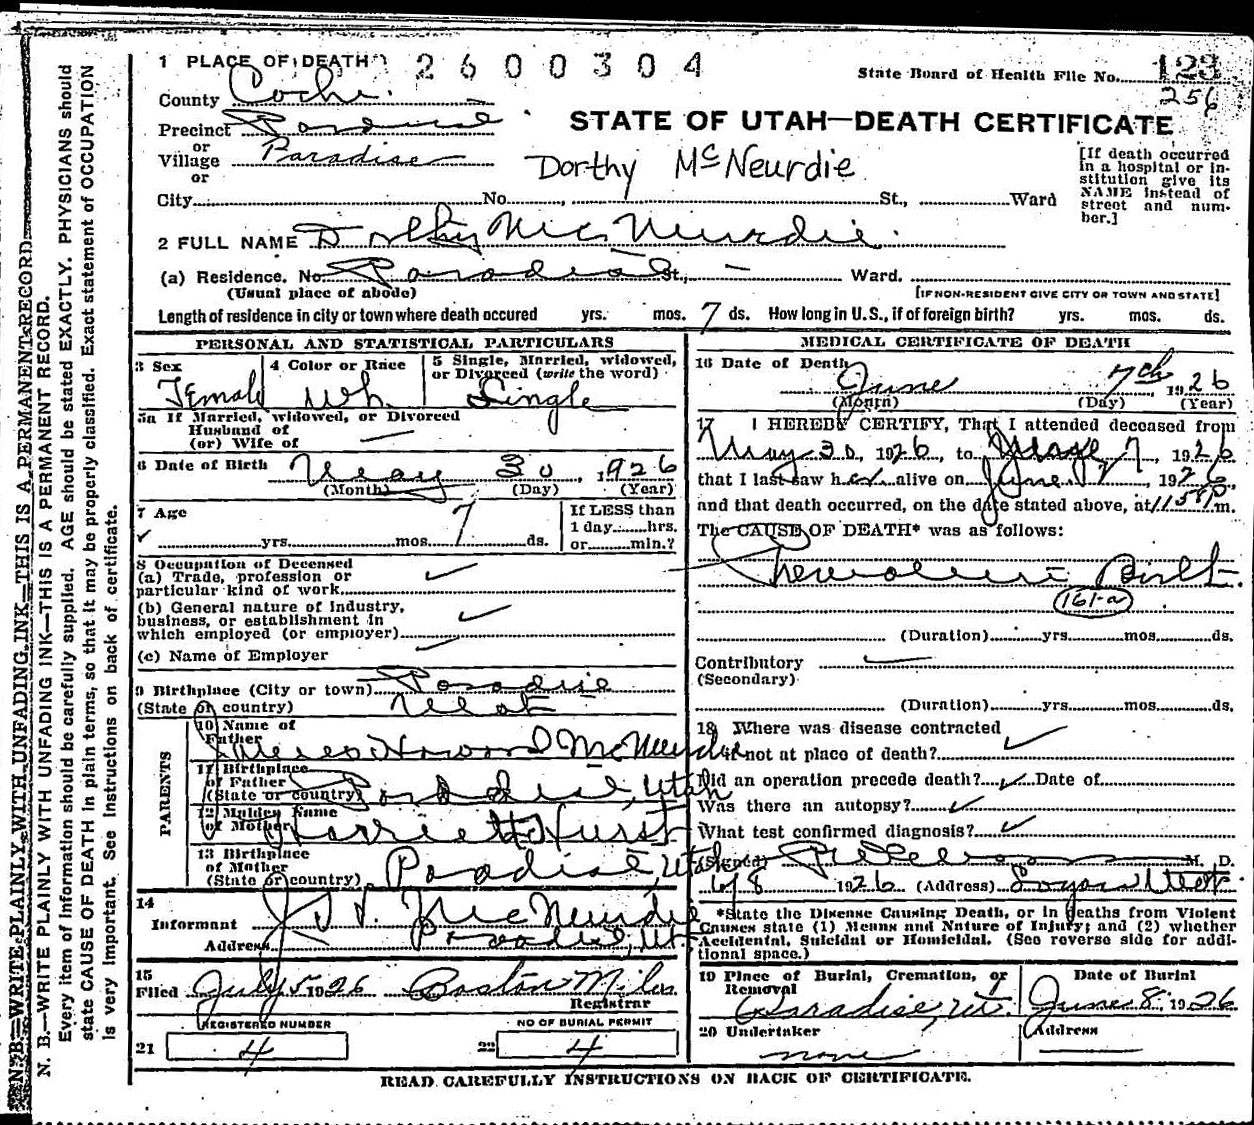 1 PLACE OF DEATH 2600304
State Board of Health File No. 123
256
County Cache
Precinct Paradise
or
Village Paradise
or
STATE OF UTAH—DEATH CERTIFICATE
Dorthy McNeurdie
[If death occurred in a hospital or in-
stitution give its
NAME instead of
street and num-
ber.]
City No. St., Ward
2 FULL NAME Dorthy McNeurdie
(a) Residence. No. Paradise St., — Ward.
(Usual place of abode) [IF NON-RESIDENT GIVE CITY OR TOWN AND STATE]
Length of residence in city or town where death occured yrs. mos. 7 ds. How long in U.S., if of foreign birth? yrs. mos. ds.
PERSONAL AND STATISTICAL PARTICULARS
3 Sex Female
4 Color or Race Wh.
5 Single, Married, widowed,
or Divorced (write the word) Single
5a If Married, widowed, or Divorced
Husband of
(or) Wife of —
6 Date of Birth May 30, 1926
(Month) (Day) (Year)
7 Age
yrs. mos. 7 ds.
If LESS than
1 day hrs.
or min.?
8 Occupation of Deceased
(a) Trade, profession or
particular kind of work
(b) General nature of industry,
business, or establishment in
which employed (or employer)
(c) Name of Employer
9 Birthplace (City or town) Paradise
(State or country) Utah
PARENTS
10 Name of
Father James Howard McNeurdie
11 Birthplace
of Father
(State or country) Paradise, Utah
12 Maiden Name
of Mother Harriett Hurst
13 Birthplace
of Mother
(State or country) Paradise, Utah
14
Informant J. H. McNeurdie
Address Paradise, Ut
15
Filed July 5 1926 Boston Miles
Registrar
REGISTERED NUMBER
21 4
NO OF BURIAL PERMIT
22 4
MEDICAL CERTIFICATE OF DEATH
16 Date of Death
June 7th, 1926
(Month) (Day) (Year)
17 I HEREBY CERTIFY, That I attended deceased from
May 30, 1926, to June 7, 1926
that I last saw her alive on June 7, 1926,
and that death occurred, on the date stated above, at 11:58 P.m.
The CAUSE OF DEATH* was as follows:
Premature Birth
161-a
(Duration) yrs. mos. ds.
Contributory
(Secondary)
(Duration) yrs. mos. ds.
18 Where was disease contracted
if not at place of death?
Did an operation precede death? Date of
Was there an autopsy?
What test confirmed diagnosis?
(Signed) M. D.
6/8 1926 (Address) Logan Utah
*State the Disease Causing Death, or in deaths from Violent
Causes state (1) Means and Nature of Injury; and (2) whether
Accidental, Suicidal or Homicidal. (See reverse side for addi-
tional space.)
19 Place of Burial, Cremation, or
Removal
Paradise, Ut.
Date of Burial
June 8, 1926
20 Undertaker
none
Address
—
READ CAREFULLY INSTRUCTIONS ON BACK OF CERTIFICATE.
N. B.—WRITE PLAINLY WITH UNFADING INK—THIS IS A PERMANENT RECORD
N. B.—WRITE PLAINLY WITH UNFADING INK—THIS IS A PERMANENT RECORD.
Every item of information should be carefully supplied. AGE should be stated EXACTLY. PHYSICIANS should
state CAUSE OF DEATH in plain terms, so that it may be properly classified. Exact statement of OCCUPATION
is very important. See instructions on back of certificate.